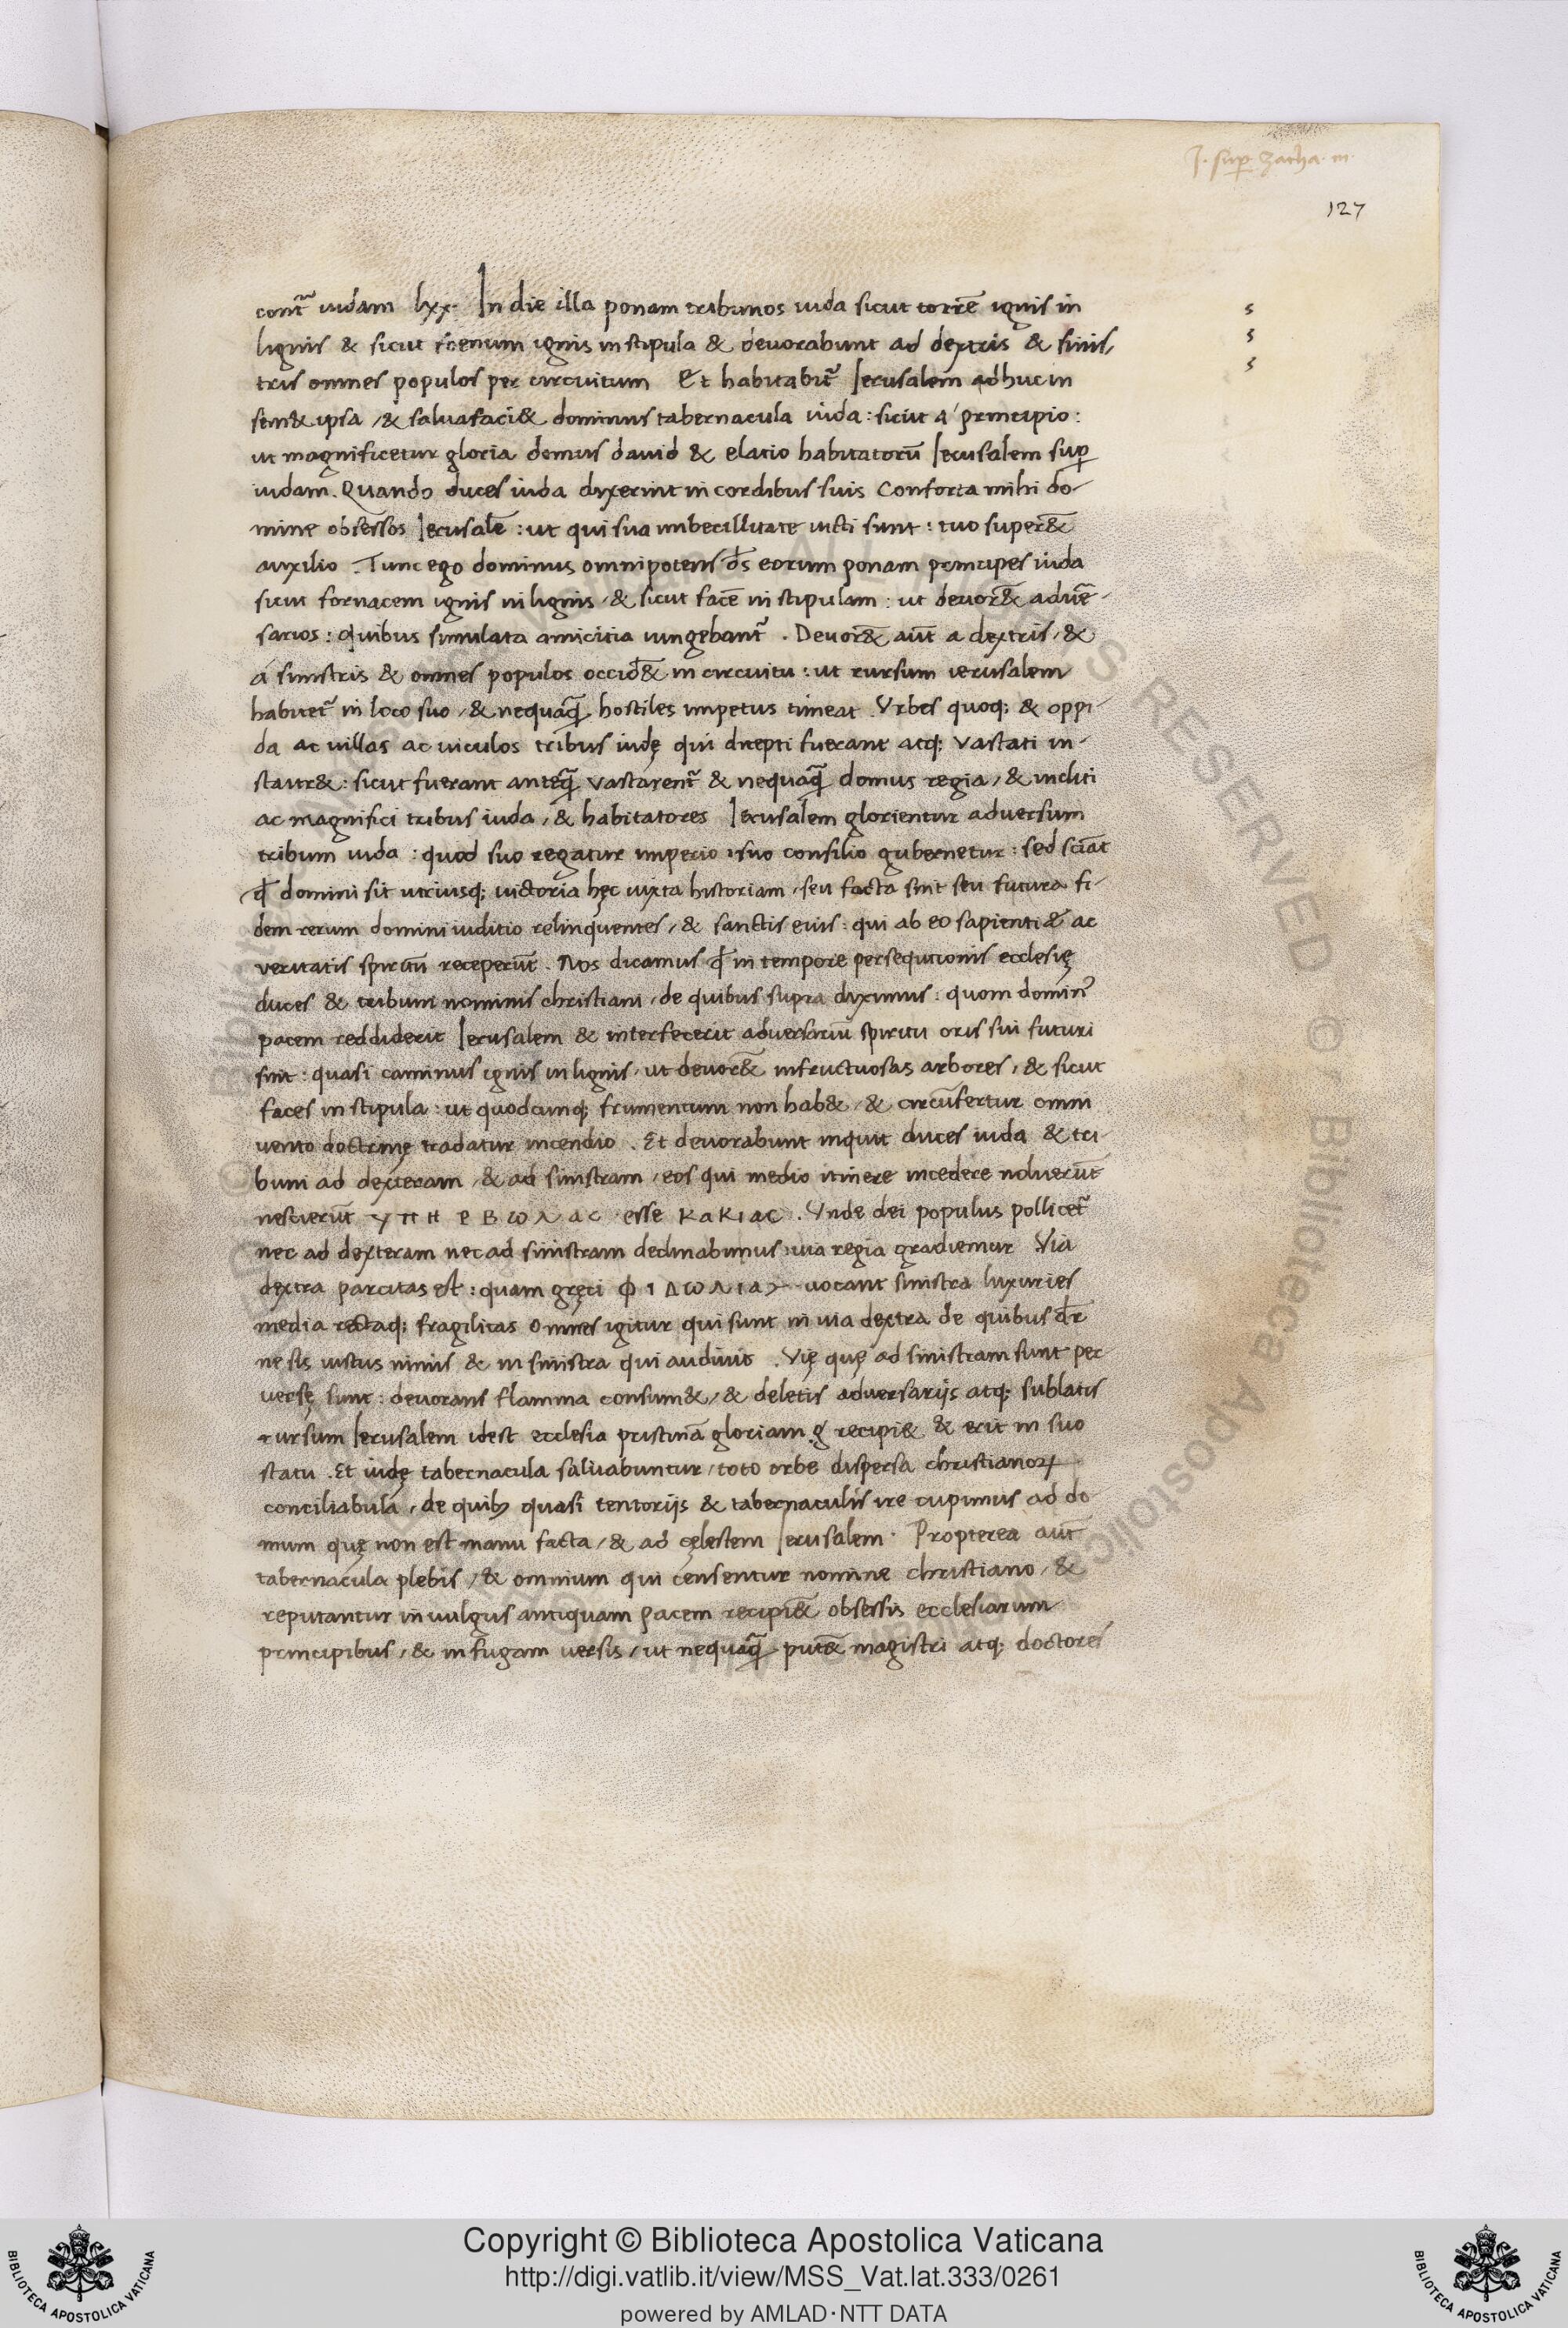 J. sup Zacha. m.
127
cont̃ iudam lxx. In die illa ponam tribunos iuda sicut torrē ignis in
lignis & sicut foenum ignis in stipula & deuorabunt ad dextris & sinis,
tris omnes populos per circuitum Et habitabit̃ Ierusalem adhuc in
sem& ipsa, & saluafaci& dominus tabernacula iuda: sicut á principio:
ut magnificetur gloria domus dauid & elatio habitatorū Ierusalem sup
iudam. Quando duces iuda dixerint in cordibus suis Conforta mihi do-
mine obsessos Ierusalē: ut qui sua imbecillitate uicti sunt: tuo super&̄
auxilio. Tunc ego dominus omnipotens d̄s eorum ponam principes iuda
sicut fornacem ignis in lignis, & sicut facē in stipulam: ut deuor&̄ aduē-
sarios: quibus simulata amicitia iungebant̃. Deuor&̄ aūt a dextris, &
á sinistris & omnes populos occid&̄ in circuitu: ut rursum ierusalem
habitet̃ in loco suo, & nequāq̄ hostiles impetus timeat. Vrbes quoq; & oppi-
da ac uillas ac uiculos tribus iudę qui direpti fuerant atq; vastati in-
staur&: sicut fuerant anteq̄ vastarent̃ & nequāq̄ domus regia, & incliti
ac magnifici tribus iuda, & habitatores Ierusalem glorientur aduersum
tribum iuda: quod suo regatur imperio, suo consilio gubernetur: sed sciāt
q̄ domini sit utriusq; uictoria hęc iuxta historiam, seu facta sint seu futura fi-
dem rerum domini iuditio relinquentes, & sanctis eius: qui ab eo sapienti& ac
veritatis spiritū receperūt. Nos dicamus q̄ in tempore persequutionis ecclesię
duces & tribuni nominis christiani, de quibus supra diximus: quom domin᾽
pacem reddiderit Ierusalem & interfecerit aduersariū spiritu oris sui futuri
sint: quasi caminus ignis in lignis, ut deuor&̄ infructuosas arbores, & sicut
faces in stipula: ut quodcunq; frumentum non hab&, & circūfertur omni
vento doctrinę tradatur incendio. Et deuorabunt inquit duces iuda & tri-
buni ad dexteram, & ad sinistram, eos qui medio itinere incedere noluerūt
nescierūt ΥΠΗΡΒωλας esse κακιας. Vnde dei populus pollicet̃
nec ad dexteram nec ad sinistram declinabimus: uia regia gradiemur Via
dextra parcitas est: quam gręci ΦιΔωλιαν uocant sinistra luxuries
media rectaq; fragilitas Omnes igitur qui sunt in uia dextra de quibus d̄r
ne sis iustus nimis & in sinistra qui audiunt. Vię quę ad sinistram sunt per
versę sunt: deuorans flamma consum&, & deletis aduersarijs atq; sublatis
rursum Ierusalem idest ecclesia pristinā gloriam g recipi& & erit in suo
statu. Et iudę tabernacula saluabuntur, toto orbe dispersa christianoꝝ
conciliabula, de quibꝫ quasi tentorijs & tabernaculis ire cupimus ad do
mum quę non est manu facta, & ad cęlestem Ierusalem. Propterea aūt
tabernacula plebis, & omnium qui censentur nomine christiano, &
reputantur in uulgus antiquam pacem recipi&̄ obsessis ecclesiarum
principibus, & in fugam uersis, ut nequāq̄ put&̄ magistri atq; doctores
s
s
s
Copyright © Biblioteca Apostolica Vaticana
http://digi.vatlib.it/view/MSS_Vat.lat.333/0261
powered by AMLAD·NTT DATA
BIBLIOTECA APOSTOLICA VATICANA
BIBLIOTECA APOSTOLICA VATICANA